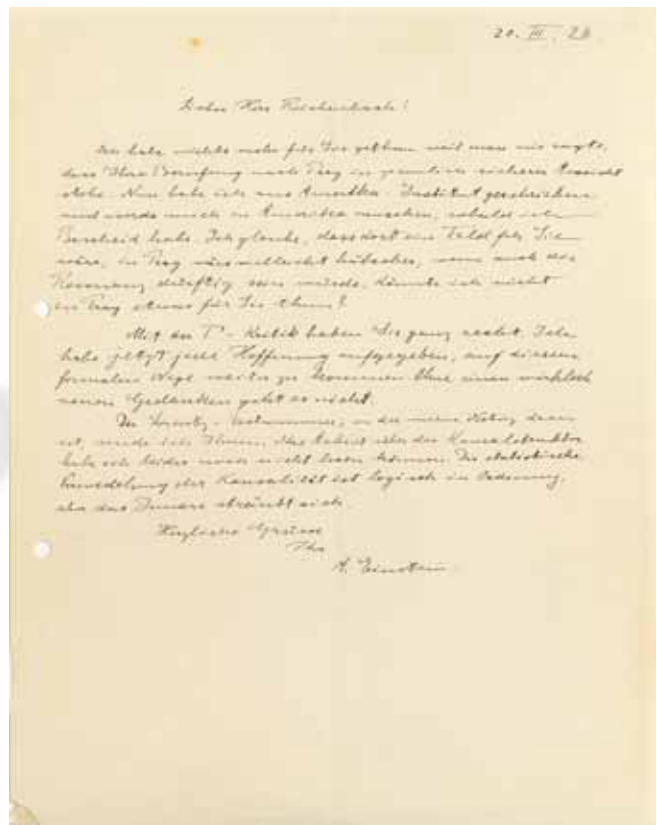 20. III. 26.
Lieber Herr Reichenbach!
Ich habe nichts mehr für Sie gethan weil man mir sagte,
dass Ihre Berufung nach Prag in ziemlich sicherer Aussicht
stehe. Nun habe ich ans Amerika-Institut geschrieben
und werde mich in Amerika umsehen, sobald ich
Bescheid habe. Ich glaube, dass dort ein Feld für Sie
wäre, in Prag wärs vielleicht hübscher, wenn auch die
dürftig sein würde. Könnte ich nicht
in Prag etwas für Sie thun?
Mit der Γ-Kritik haben Sie ganz recht. Ich
habe jetzt jede Hoffnung aufgegeben, auf diesem
formalen Wege weiter zu kommen. Ohne einen wirklich
neuen Gedanken geht es nicht.
Die Lorentz-Nummer, in der meine Notiz darin
ist, sende ich Ihnen. Ihre Arbeit über die Kausalstruktur
habe ich leider noch nicht lesen können. Die statistische
der Kausalität ist logisch in Ordnung,
aber das Innere sträubt sich.
Herzliche Grüsse
Ihr
A. Einstein.